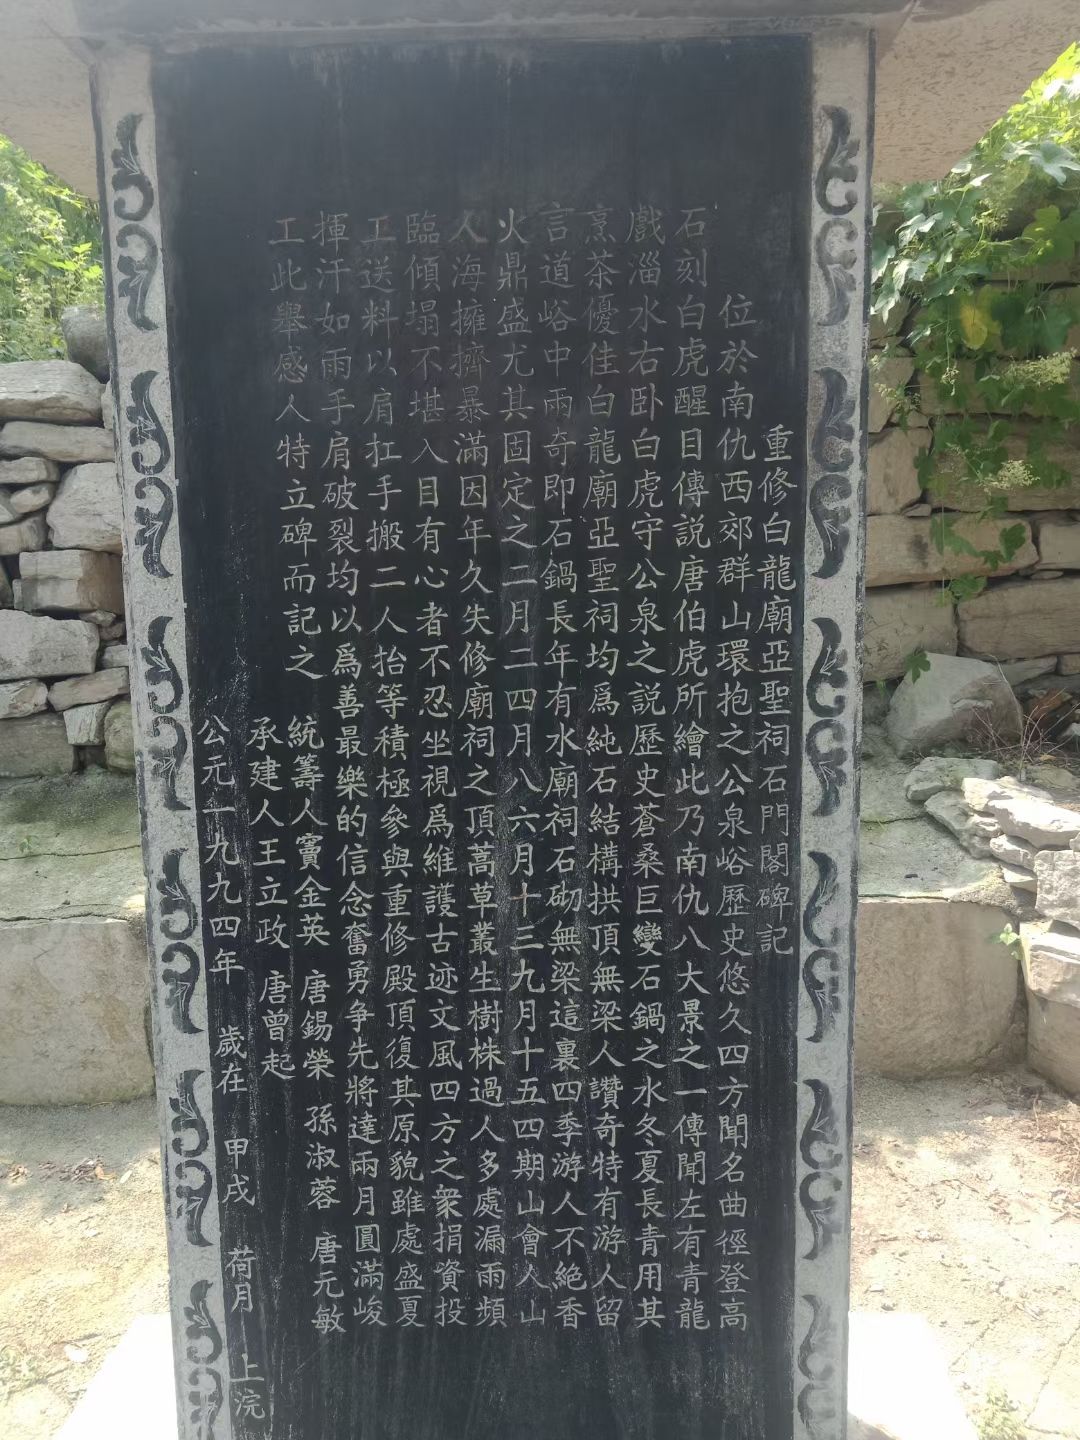 重修白龍廟亞聖祠石門閣碑記
位於南仇西郊群山環抱之公泉峪歷史悠久四方聞名曲徑登高
石刻白虎醒目傳説唐伯虎所繪此乃南仇八大景之一傳聞左有青龍
戲淄水右卧白虎守公泉之説歷史蒼桑巨變石鍋之水冬夏長青用其
烹茶優佳白龍廟亞聖祠均爲純石結構拱頂無梁人讚奇特有游人留
言道峪中兩奇即石鍋長年有水廟祠石砌無梁這裏四季游人不絶香
火鼎盛尤其固定之二月二四月八六月十三九月十五四期山會人山
人海擁擠暴滿因年久失修廟祠之頂蒿草叢生樹株過人多處漏雨頻
臨傾塌不堪入目有心者不忍坐視爲維護古迹文風四方之衆捐資投
工送料以肩扛手搬二人抬等積極參與重修殿頂復其原貌雖處盛夏
揮汗如雨手肩破裂均以爲善最樂的信念奮勇争先將達兩月圓滿峻
工此舉感人特立碑而記之
統籌人竇金英 唐錫榮 孫淑蓉 唐元敏
承建人王立政 唐曾起
公元一九九四年 歲在 甲戌 荷月 上浣